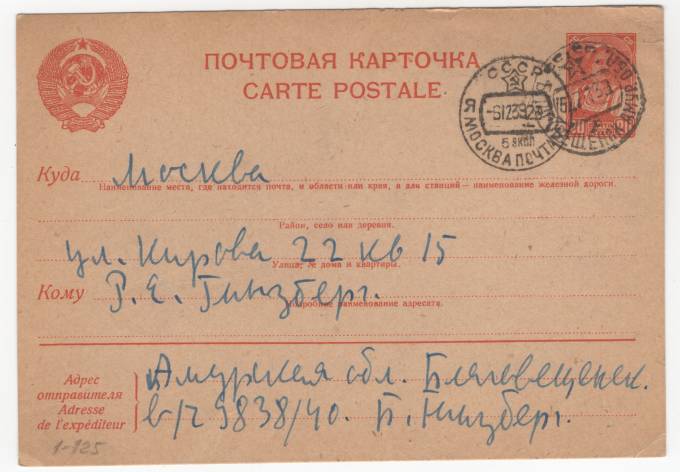 ПОЧТОВАЯ КАРТОЧКА
CARTE POSTALE
СССР
-6123923
5 эксп
МОСКВА ПОЧТ
Куда Москва
Наименование места, где находится почта, и области или края, а для станций — наименование железной дороги.
Район, село или деревня.
ул. Кирова 22 кв 15
Улица, № дома и квартиры.
Кому Р. Е. Гинзберг.
Подробное наименование адресата.
Адрес отправителя
Adresse de l'expéditeur
Амурская обл. Благовещенск.
в/ч 9838/40. Б. Гинзберг.
1-125